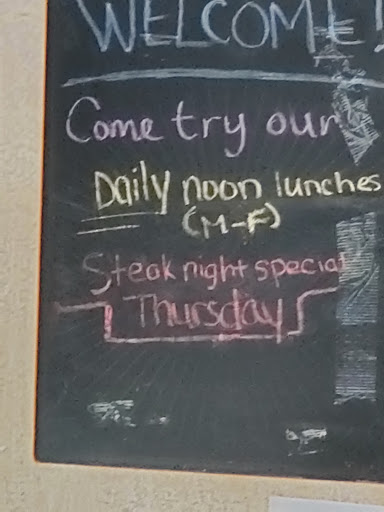 WELCOME!
Come try our
Daily noon lunches
(M-F)
Steak night special
Thursday